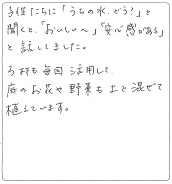 子供たちに「うちの水、どう?」と
聞くと、「おいしい〜」「安心感がある」
と話してました。
ろ材も毎回活用して、
庭のお花や野菜も土と混ぜて
植えています。